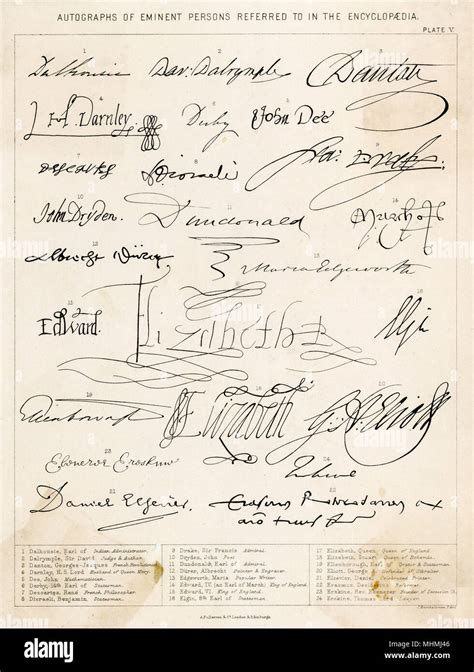 AUTOGRAPHS OF EMINENT PERSONS REFERRED TO IN THE ENCYCLOPÆDIA.
PLATE V.
1 2 3
Dalhousie Dav: Dalrymple Danton
H. Darnley Derby John Dee
Descartes Disraeli Fra: Drake
10
John Dryden. Dundonald
12
Albrecht Dürer
Maria Edgeworth
Edward. Elizabeth
19 20
Elizabeth
Ebenezer Erskine
Daniel Elzevier
1 Dalhousie, Earl of Indian Administrator.
2 Dalrymple, Sir David Judge & Author.
3 Danton, Georges-Jacques French Revolutionist.
4 Darnley, H.S. Lord Husband of Queen Mary.
5 Dee, John Mathematician.
6 Derby, 14th Earl of Statesman.
7 Descartes, René French Philosopher.
8 Disraeli, Benjamin Statesman.
9 Drake, Sir Francis Admiral.
10 Dryden, John Poet.
11 Dundonald Earl of Admiral.
12 Dürer, Albrecht Painter & Engraver.
13 Edgeworth, Maria Popular Writer.
15 Edward, IV (as Earl of March) King of England.
15 Edward, VI. King of England.
16 Elgin, 8th Earl of Statesman.
17 Elizabeth, Queen Queen of England.
18 Elizabeth, Stuart Queen of Bohemia.
19 Ellenborough, Earl of Statesman.
20 Elliott, George Defender of Gibraltar.
21 Elzevier, Daniel Celebrated Printer.
22 Erasmus
23 Erskine, Rev Ebenezer
24 Erskine, Thomas
A. Fullarton & Co. London & Edinburgh.
alamy
Image ID: MHMJ46
www.alamy.com